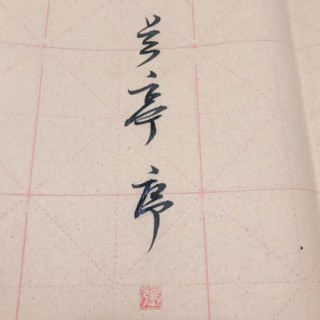 兰亭序